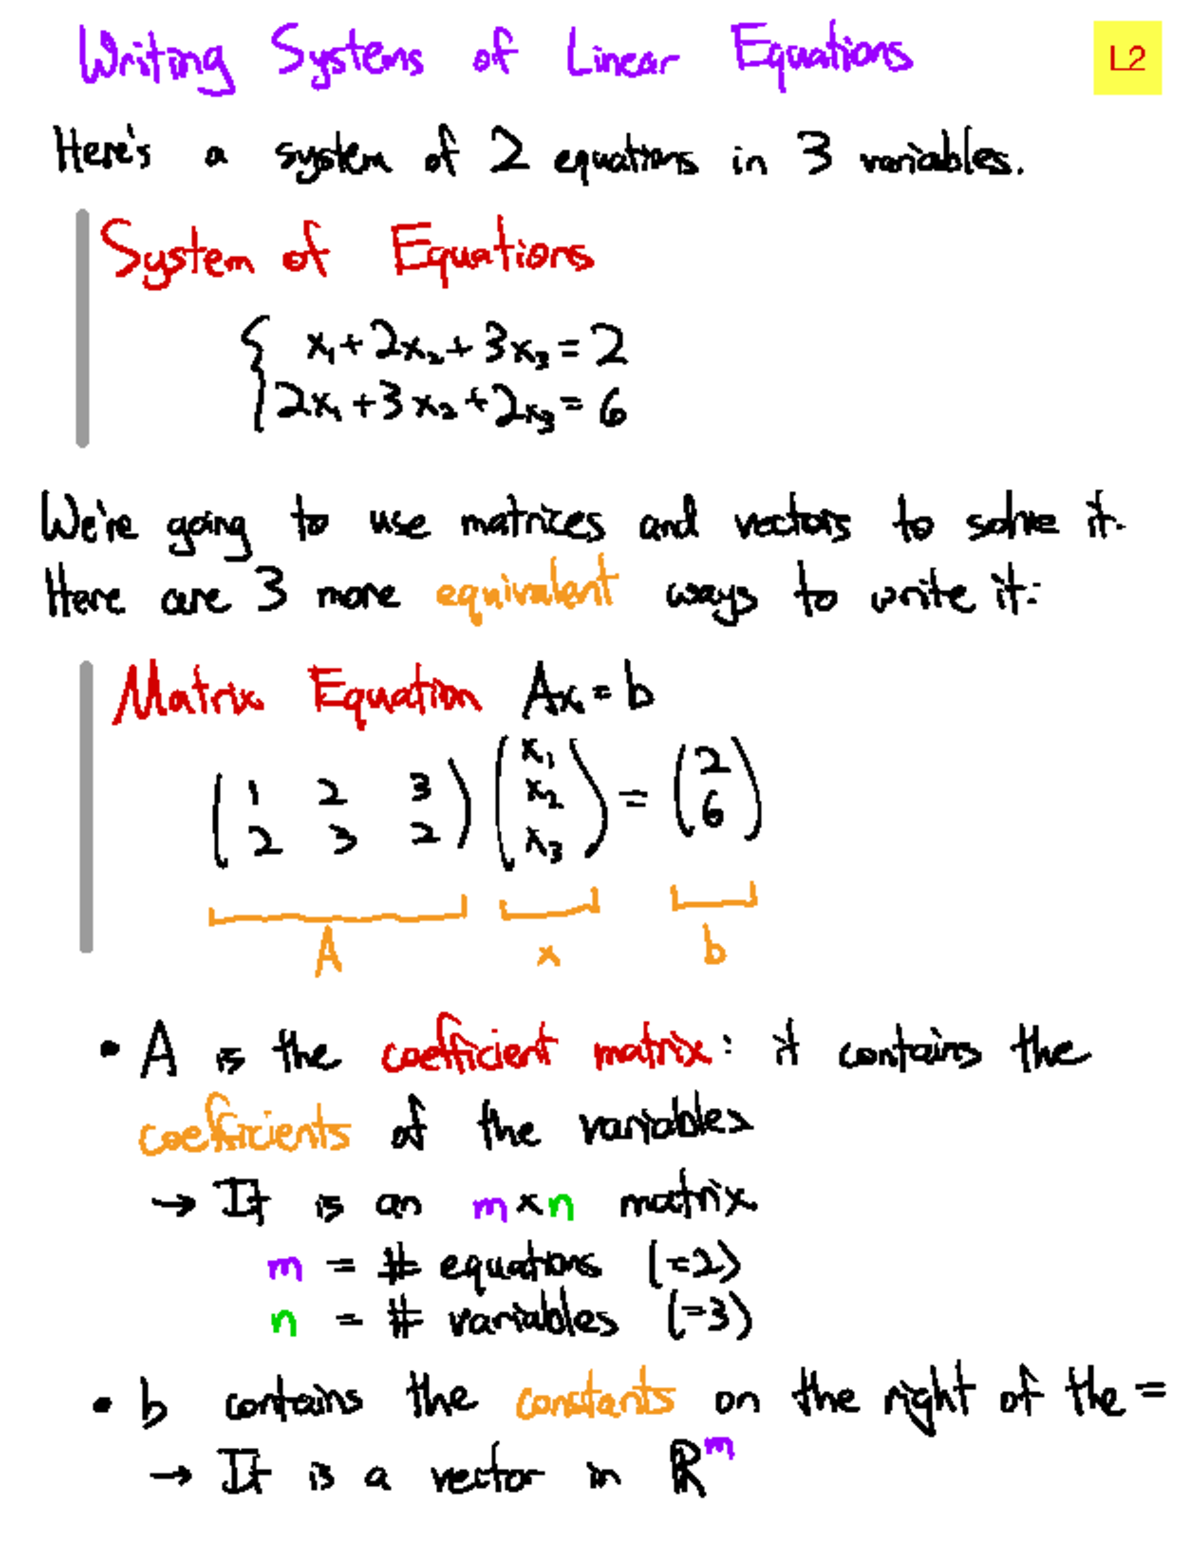 Writing Systems of Linear Equations
L2
Here's a system of 2 equations in 3 variables.
System of Equations
{ x₁+2x₂+3x₃=2
2x₁+3x₂+2x₃=6
We're going to use matrices and vectors to solve it.
Here are 3 more equivalent ways to write it:
Matrix Equation Ax=b
(1 2 3) (x₁ x₂ x₃) = (2 6)
2 3 2
A x b
• A is the coefficient matrix: it contains the
coefficients of the variables
→ It is an m×n matrix
m = # equations (=2)
n = # variables (=3)
• b contains the constants on the right of the =
→ It is a vector in ℝᵐ